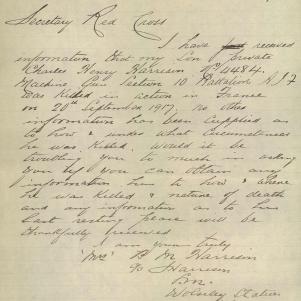 Secretary Red Cross
I have received
information that my Son Private
Charles Henry Harrison No 4484.
Machine Gun Section 10 Battalion A.I.F
was Killed in action in France
on 20th September 1917, no other
information has been supplied as
to how & under what circumstances
he was Killed. Would it be
troubling you to much in asking
you if you can obtain any
information how to how & where
he was Killed & nature of death
and any information as to his
last resting place will be
thankfully received
I am yours truly
Mrs B M Harrison
Harrison
Wolseley Station